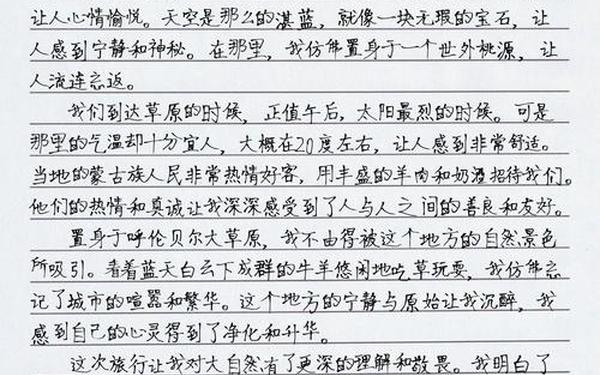 让人心情愉悦。天空是那么的湛蓝，就像一块无瑕的宝石，让
人感到宁静和神秘。在那里，我仿佛置身于一个世外桃源，让
人流连忘返。
我们到达草原的时候，正值午后，太阳最烈的时候。可是
那里的气温却十分宜人，大概在20度左右，让人感到非常舒适。
当地的蒙古族人民非常热情好客，用丰盛的羊肉和奶酒招待我们。
他们的热情和真诚让我深深感受到了人与人之间的善良和友好。
置身于呼伦贝尔大草原，我不由得被这个地方的自然景色
所吸引。看着蓝天白云下成群的牛羊悠闲地吃草玩耍，我仿佛忘
记了城市的喧嚣和繁华。这个地方的宁静与原始让我沉醉，我
感到自己的心灵得到了净化和升华。
这次旅行让我对大自然有了更深的理解和敬畏。我明白了